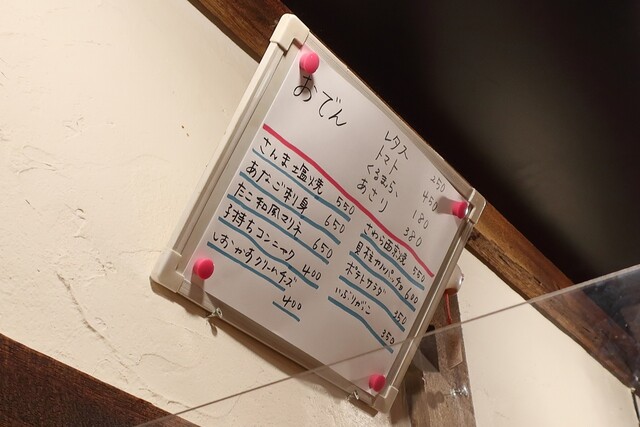 おでん
レタス 250
トマト 450
くるまふ 180
あさり 380
さんま塩焼 550
あなご刺身 650
たこ和風マリネ 650
子持ちコンニャク 400
しおかすクリームチーズ 400
さわら西京焼 550
貝柱カルパッチョ 600
ポテトサラダ 350
いぶりがっこ 350